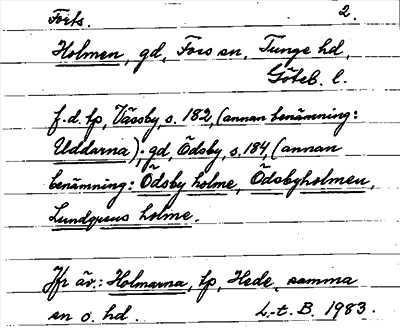 Forts. 2.
Holmen, gd, Foss sn, Tunge hd,
Göteb. l.
f.d. lp, Vässby, s. 182, (annan benämning:
Uddarna); gd, Ödsby, s. 184, (annan
benämning: Ödsby holme, Ödsbyholmen,
Lundgrens holme.
Jfr äv.: Holmarna, lp, Hede, samma
sn o. hd. L.-t. B. 1983.